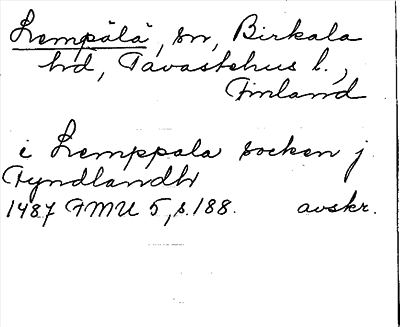 Lempälä, sn, Birkala
hd, Tavastehus l.,
Finland
i Lemppala socken j
Fyndlandh
1487 FMU 5, s. 188. avskr.